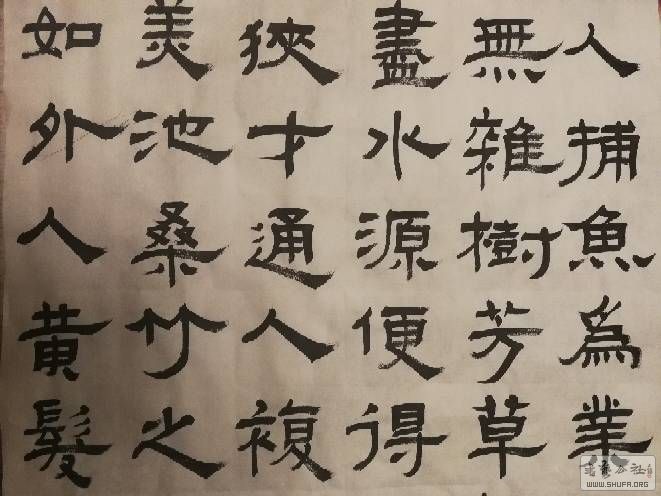 人捕魚為業
無雜樹芳草
盡水源便得
狹才通人複
美池桑竹之
如外人黃髮
書法公社
WWW.SHUFA.ORG